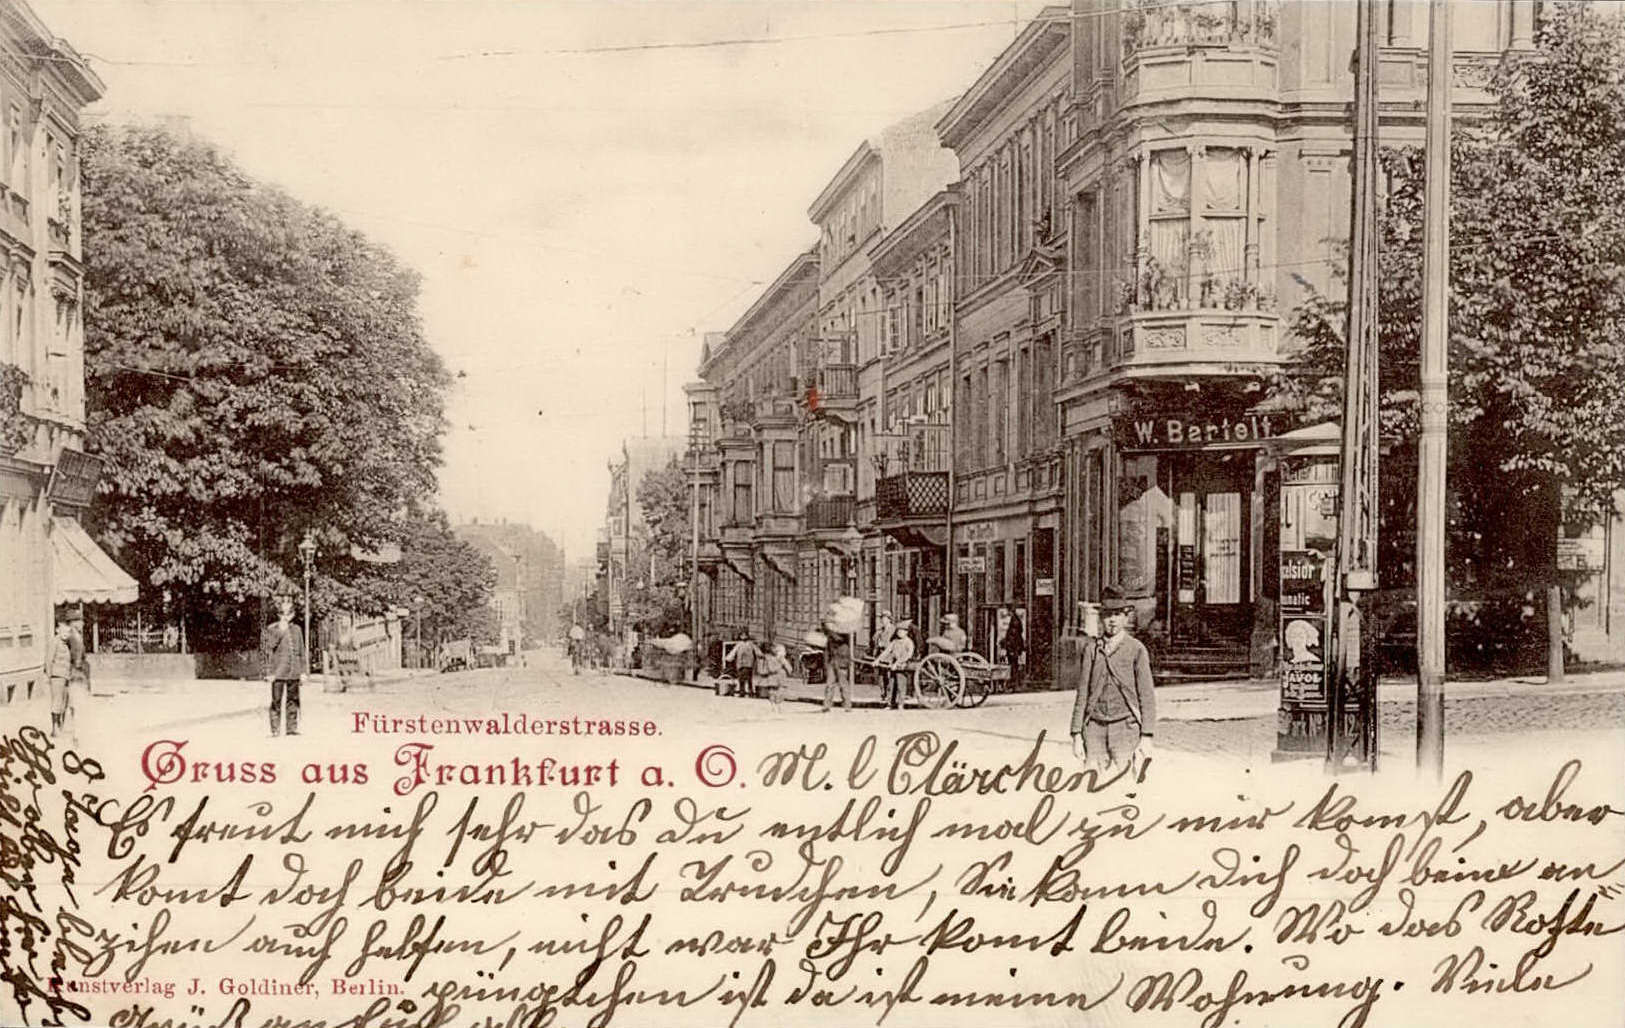 W. Bartelt
JAVOL
Fürstenwalderstrasse.
Gruss aus Frankfurt a. O.
M. l Clärchen!
Es freut mich sehr das Du entlich mal zu mir komst, aber
komt doch beide mit Trudchen, Sie kann Dich doch beim an
zihen auch helfen, nicht war Ihr komt beide. Wo das Rohte
püngtchen ist da ist meine Wohnung. Viele
Kunstverlag J. Goldiner, Berlin.
8 Tage